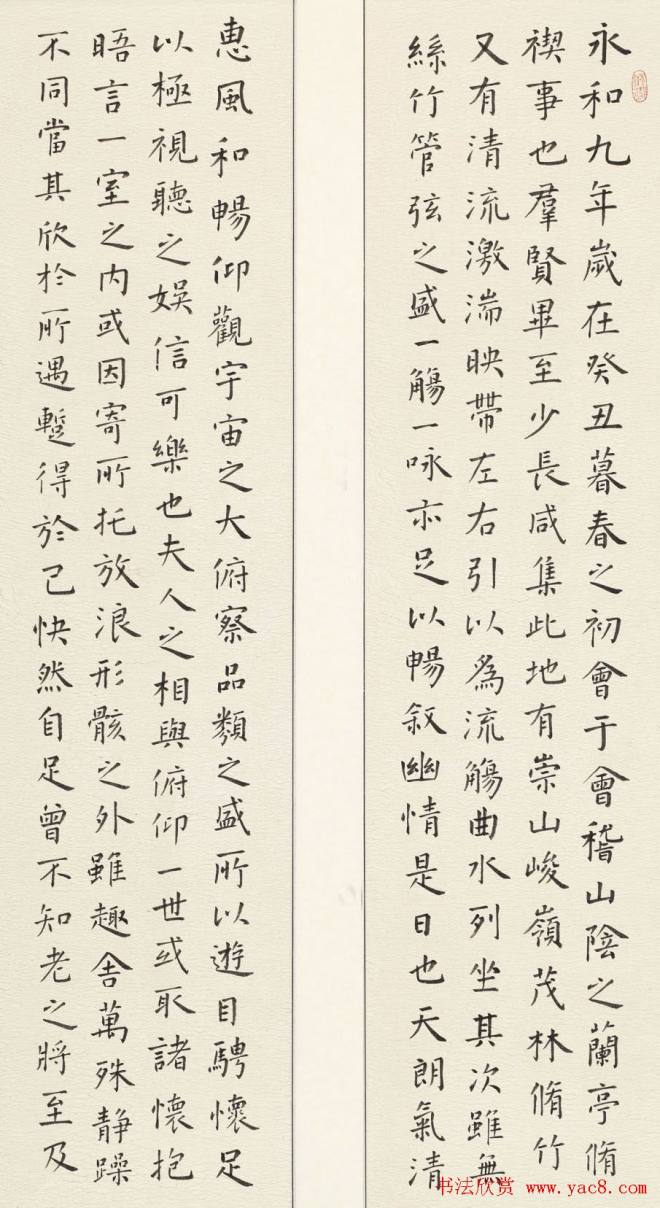 永和九年歲在癸丑暮春之初會于會稽山陰之蘭亭脩
禊事也羣賢畢至少長咸集此地有崇山峻嶺茂林脩竹
又有清流激湍映帶左右引以為流觴曲水列坐其次雖無
絲竹管弦之盛一觴一詠亦足以暢叙幽情是日也天朗氣清
惠風和暢仰觀宇宙之大俯察品類之盛所以遊目騁懷足
以極視聽之娛信可樂也夫人之相與俯仰一世或取諸懷抱
晤言一室之內或因寄所托放浪形骸之外雖趣舍萬殊静躁
不同當其欣於所遇蹔得於己快然自足曾不知老之將至及
书法欣赏 www.yac8.com